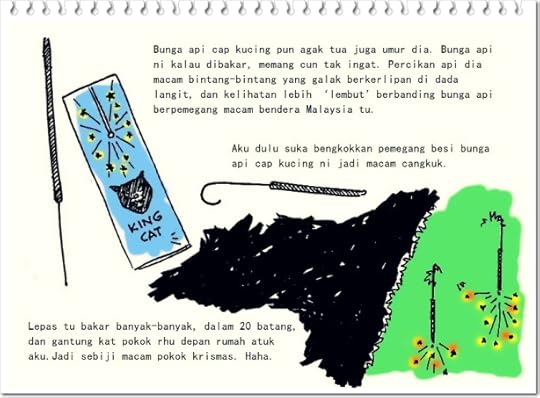 Bunga api cap kucing pun agak tua juga umur dia. Bunga api
ni kalau dibakar, memang cun tak ingat. Percikan api dia
macam bintang-bintang yang galak berkerlipan di dada
langit, dan kelihatan lebih ‘lembut’ berbanding bunga api
berpemegang macam bendera Malaysia tu.
Aku dulu suka bengkokkan pemegang besi bunga
api cap kucing ni jadi macam cangkuk.
KING
CAT
Lepas tu bakar banyak-banyak, dalam 20 batang,
dan gantung kat pokok rhu depan rumah atuk
aku.Jadi sebiji macam pokok krismas. Haha.